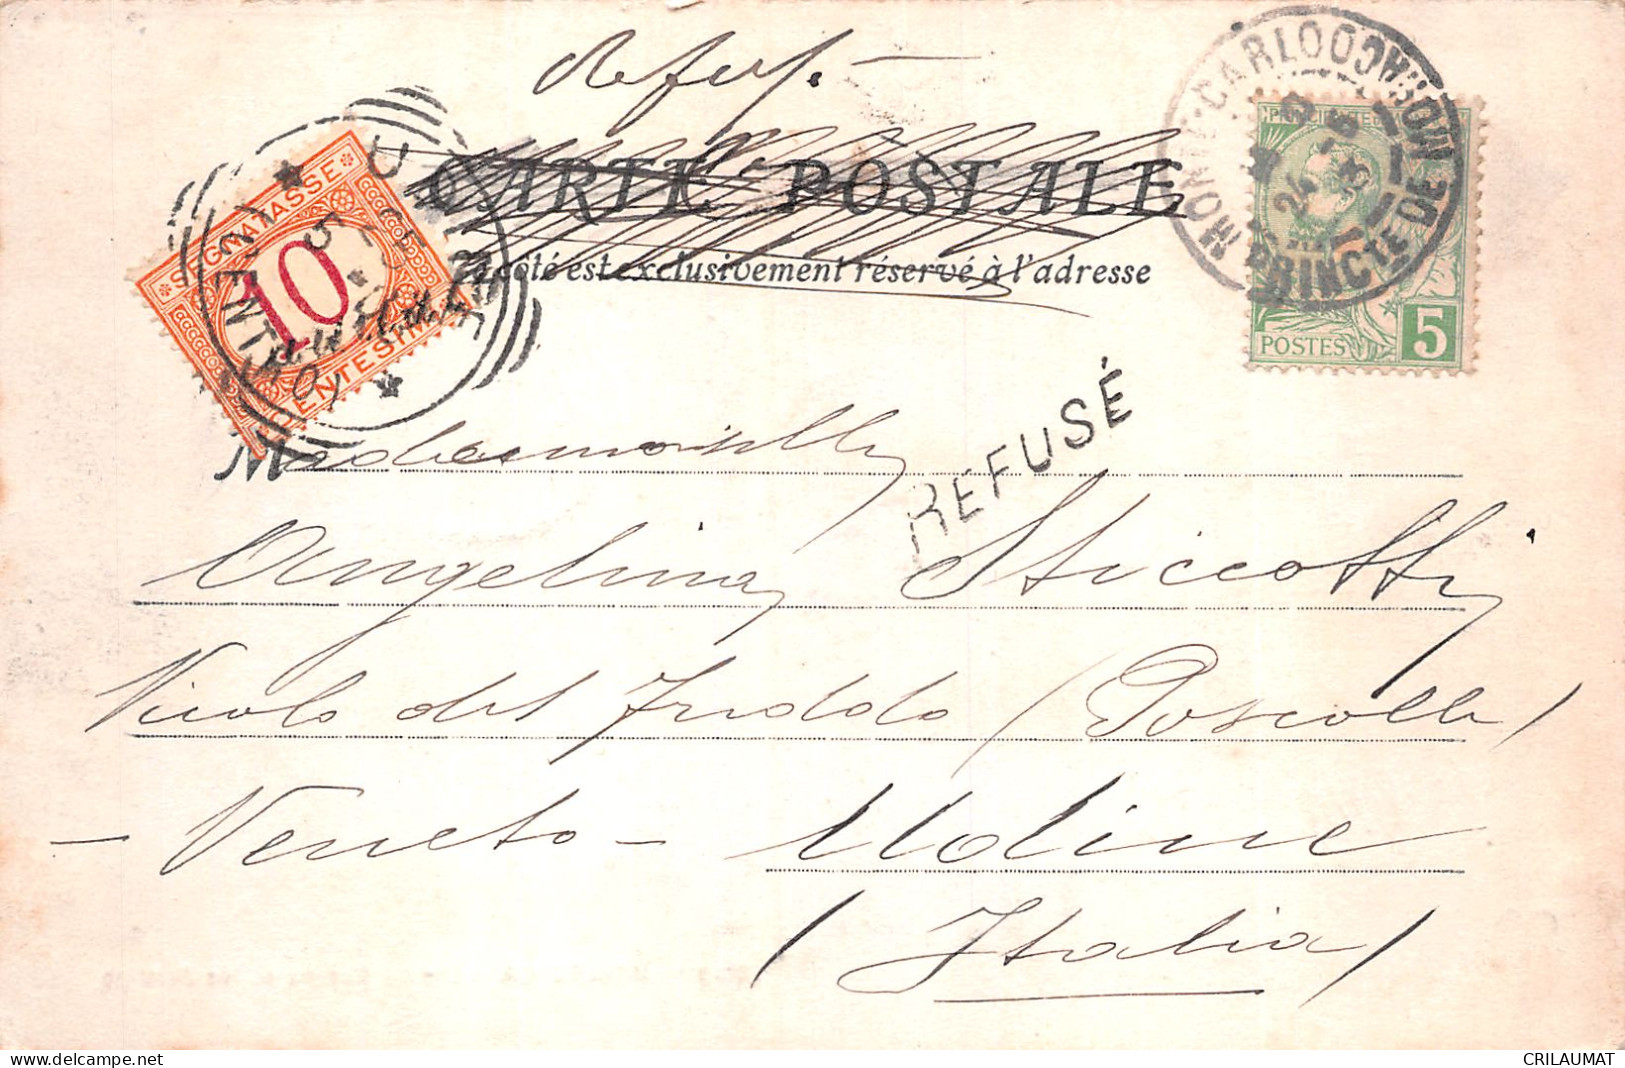 Refus.
CARTE POSTALE
côté est exclusivement réservé à l'adresse
SEGNATASSE
10
CENTESIMI
MONTE-CARLO
PRINCTE DE MONACO
24
POSTES 5
REFUSÉ
Mademoiselle
Angelina Sticcotti
Vicolo del Freddo (Poscolle)
- Veneto - Udine
(Italia)
CRILAUMAT